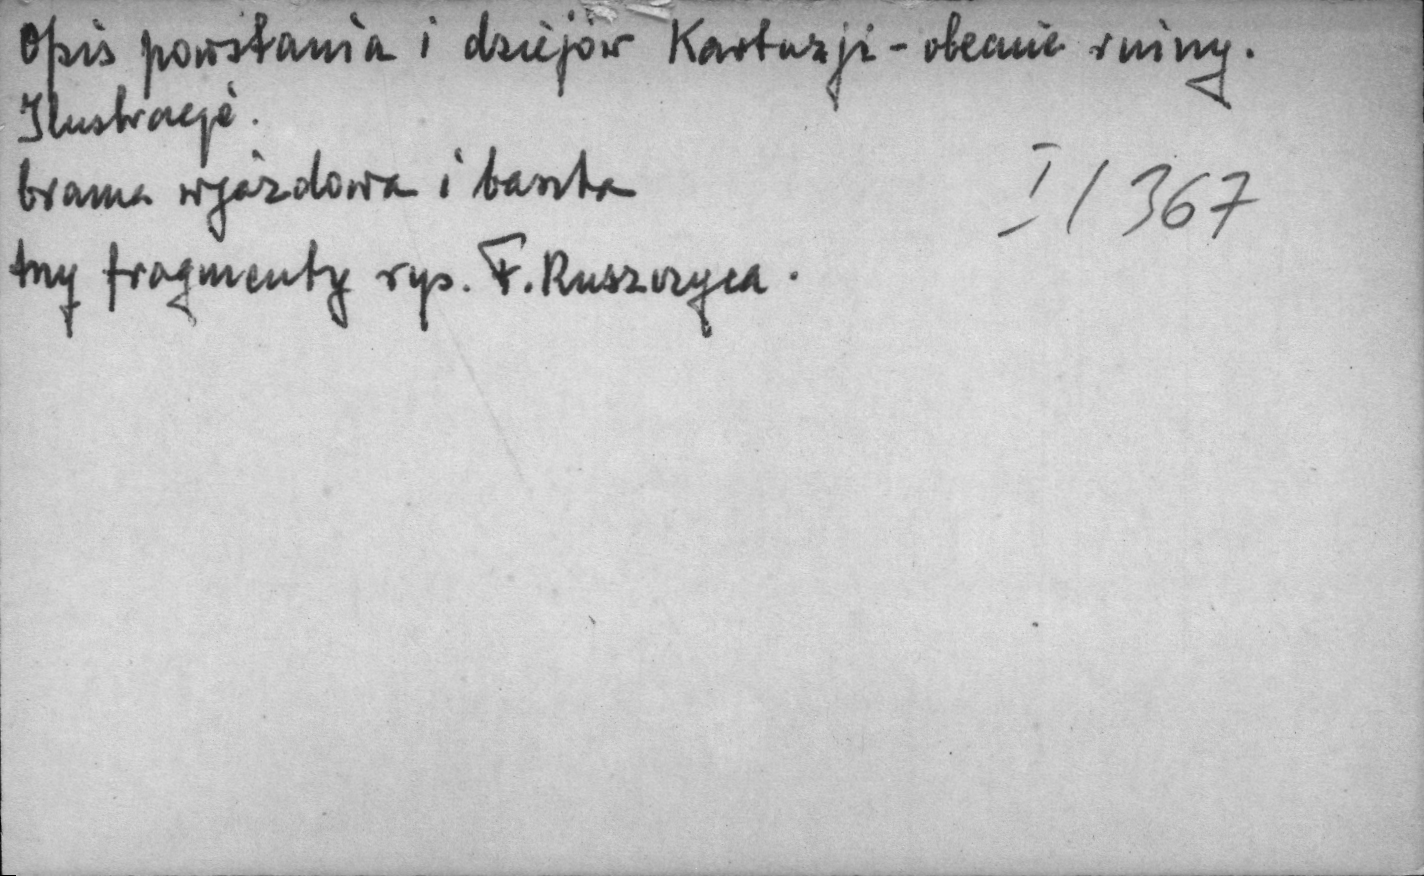 Opis powstania i dziejów Kartuzji - obecnie ruiny.
Ilustracje.
brama wjazdowa i baszta
I / 367
trzy fragmenty rys. F. Ruszczyca.